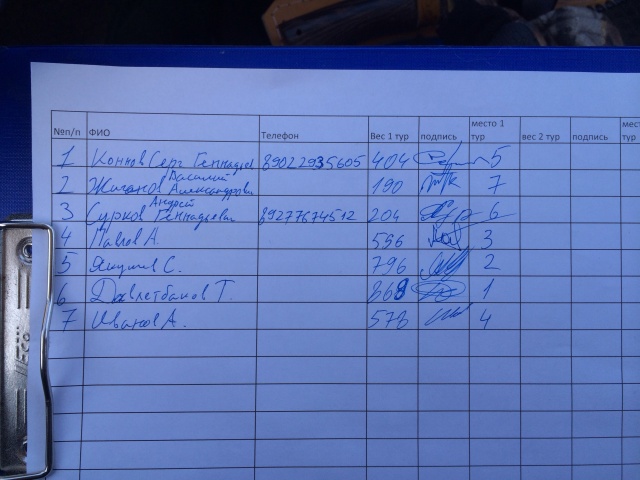 №п/п ФИО Телефон Вес 1 тур подпись место 1 тур вес 2 тур подпись мес
1 Коннов Серг Геннадьев 89022935605 404 5
2 Жиганов Василий Александрович 190 7
3 Сурков Андрей Геннадьевич 89277674512 204 6
4 Павлов А. 596 3
5 Якушев С. 796 2
6 Давлетбаков Т. 868 1
7 Иванов А. 578 4